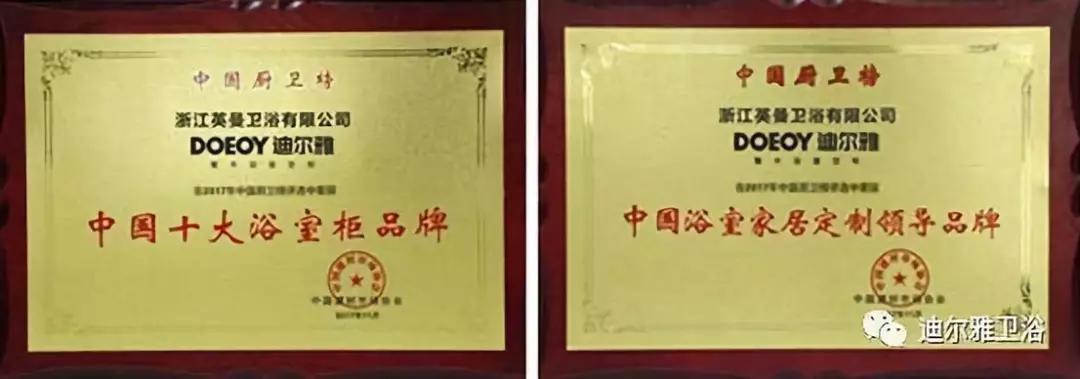 中国厨卫榜
浙江英曼卫浴有限公司
DOEOY 迪尔雅
在2017年中国厨卫榜评选中荣获
中国十大浴室柜品牌
中国建材市场协会
中国厨卫榜
浙江英曼卫浴有限公司
DOEOY 迪尔雅
在2017年中国厨卫榜评选中荣获
中国浴室家居定制领导品牌
迪尔雅卫浴